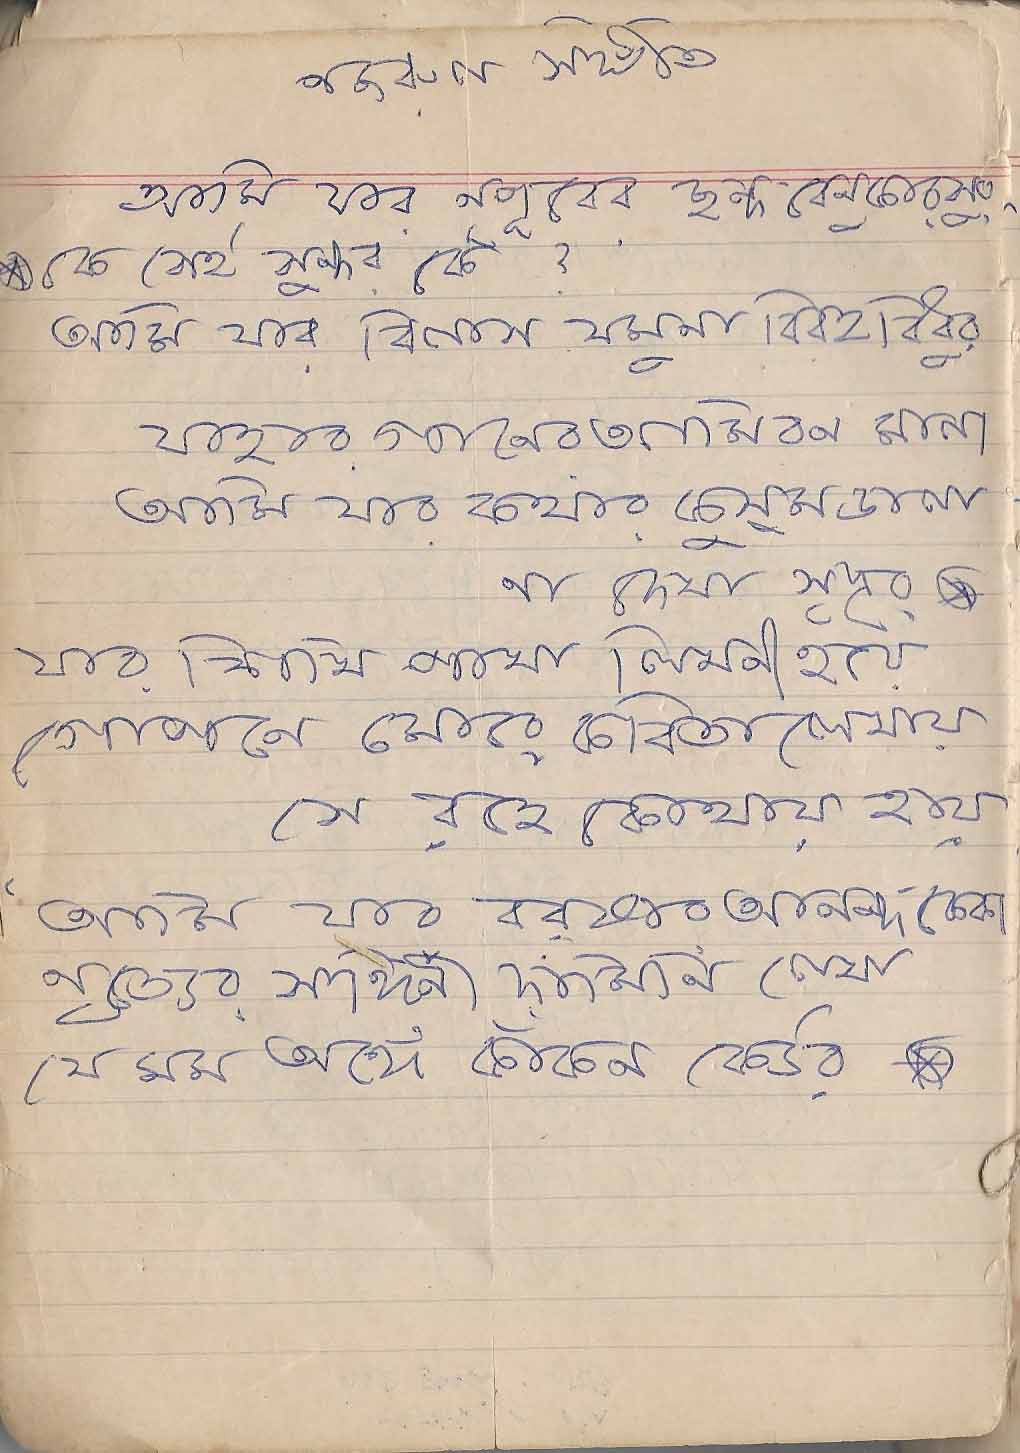 নজরুল সঙ্গীত
আমি যার নপূরের ছন্দ বেনুকার সুর
কে সেই সুন্দর কে ?
আমি যার বিলাস যমুনা বিরহ বিধুর
যাহার গানের আমি বনমালা
আমি যার কথার কুসুমডালা
না দেখা সুদূর
যার শিখী পাখা লিখনী হয়ে
গোপনে মোরে কবিতা লেখায়
সে রহে কোথায় হায়
আমি যার বরষার আনন্দ কেকা
নৃত্যের সঙ্গিনী দামিনি লেখা
যে মম অঙ্গে কাঁকন কেউর